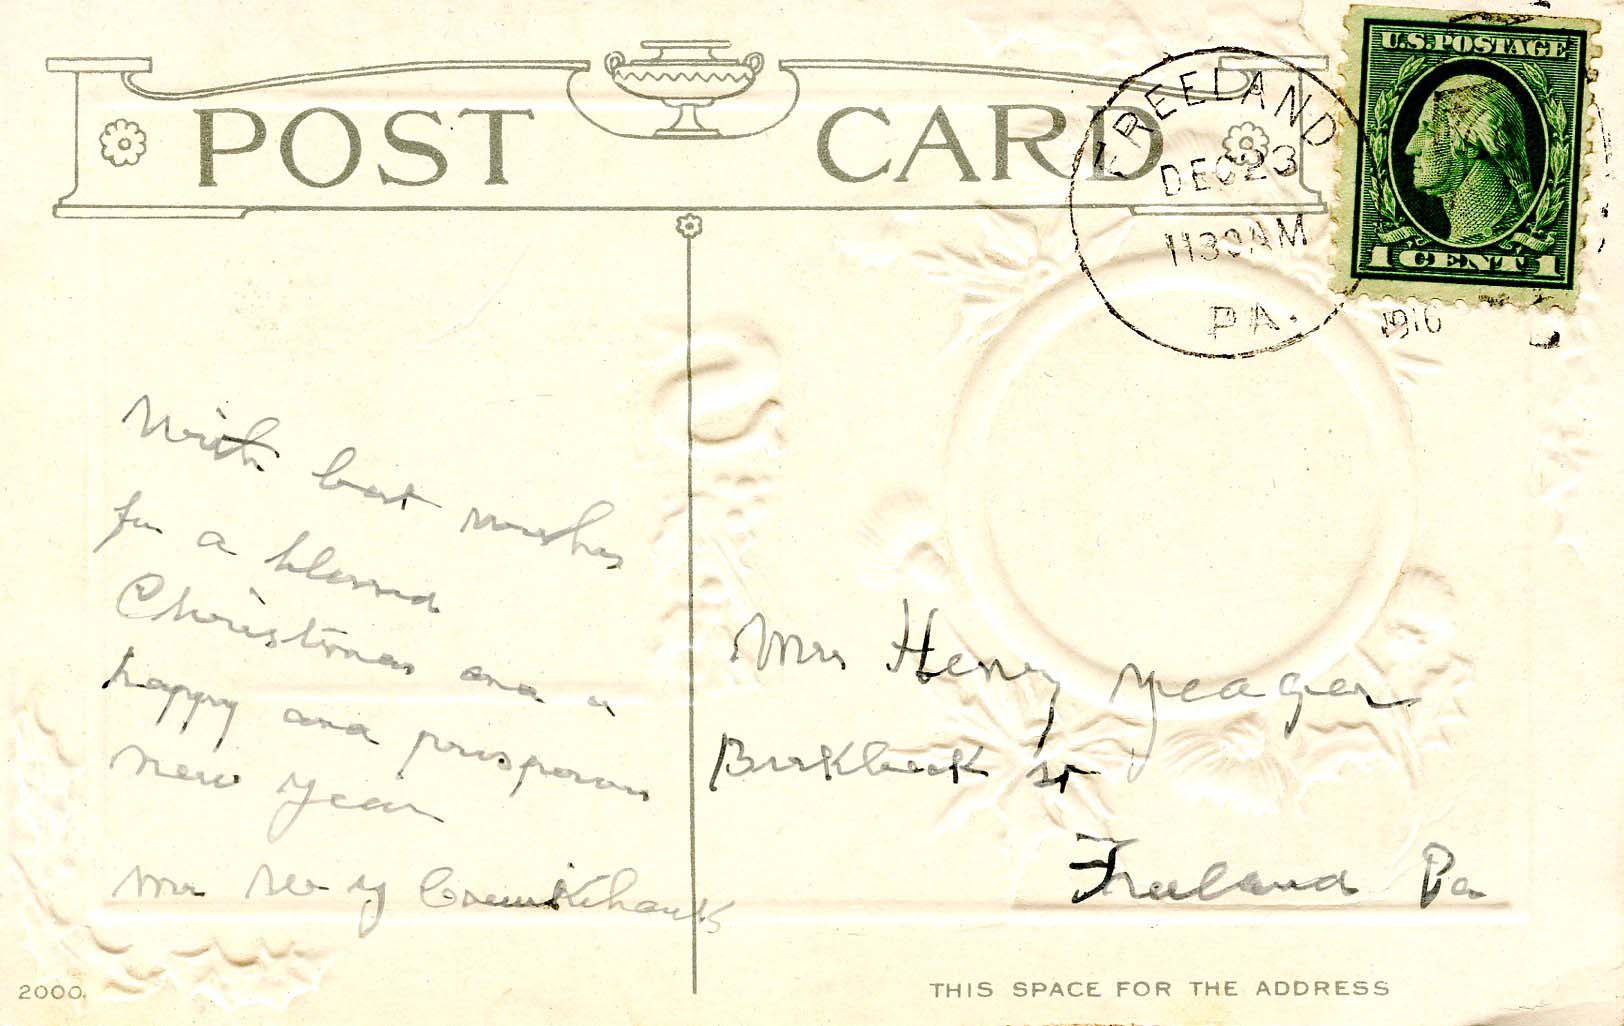 POST CARD
FREELAND
DEC 23
1130AM
PA.
1916
U.S. POSTAGE
1 CENT 1
With best wishes
for a blessed
Christmas and a
happy and prosperous
New Year
Mrs Henry Yeager
Birkbeck St
Freeland Pa
2000.
THIS SPACE FOR THE ADDRESS